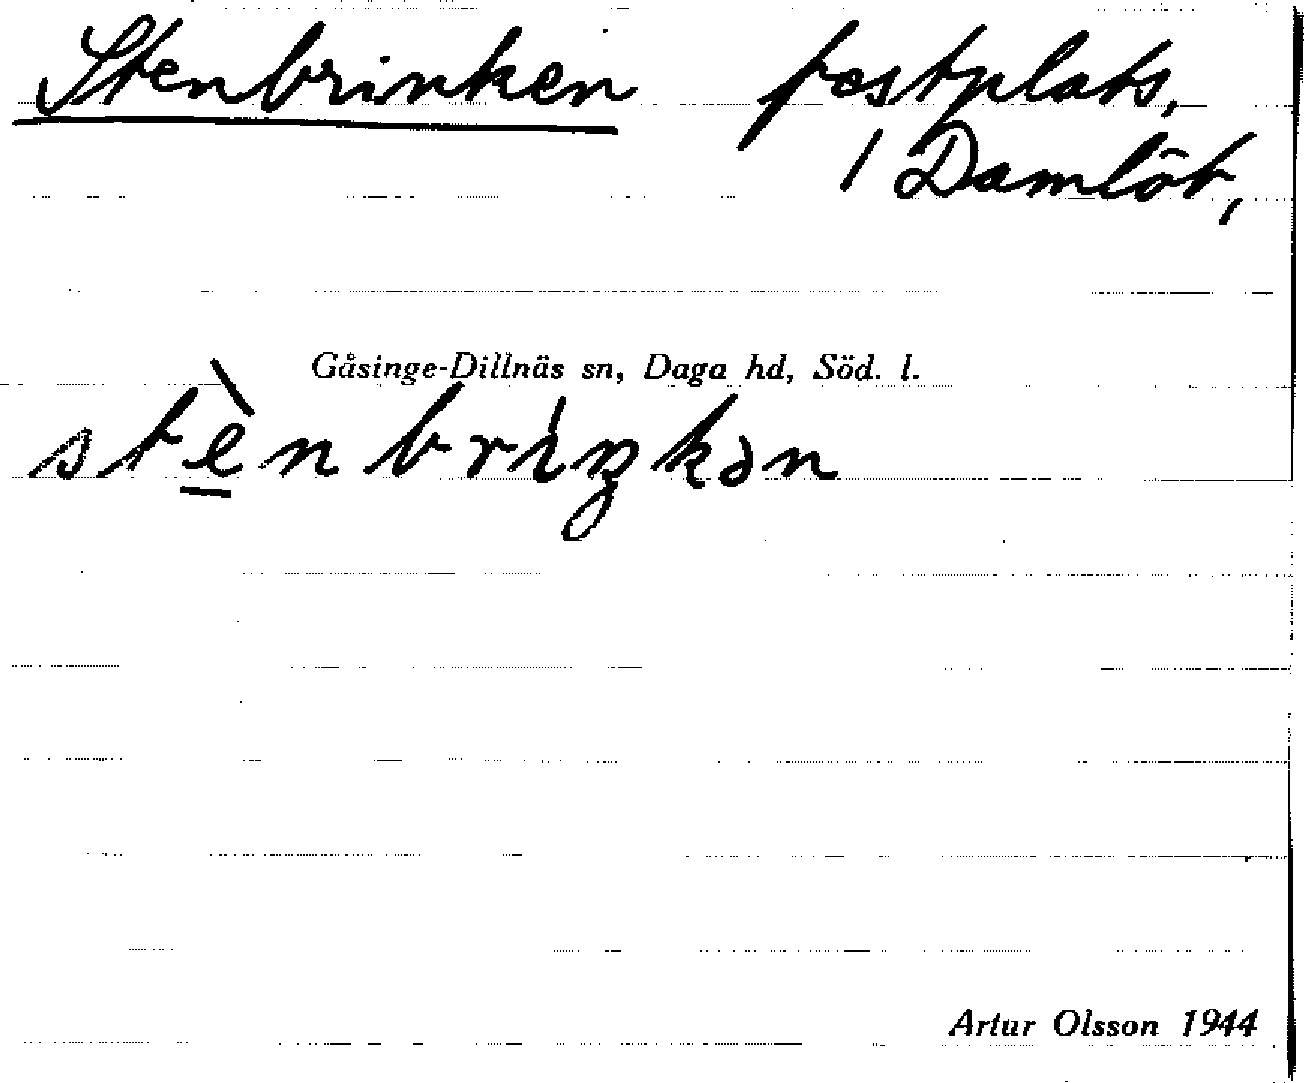 Stenbrinken festplats,
1 Damlöt,
Gåsinge-Dillnäs sn, Daga hd, Söd. l.
stènbriŋkən
Artur Olsson 1944